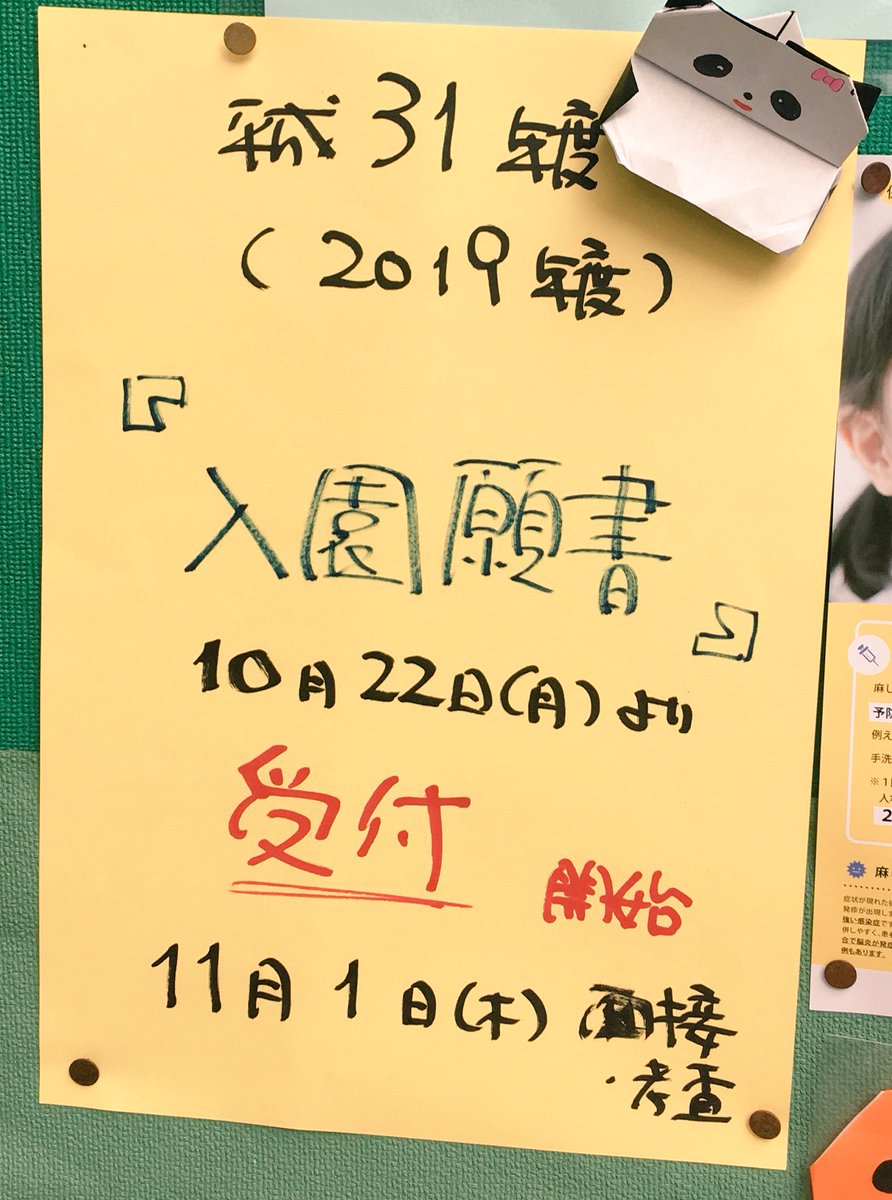 平成31年度
(2019年度)
『
入園願書
』
10月22日(月)より
受付 開始
11月1日(木) 面接
・考査
麻し
予防
例え
手洗
※1
2
麻し
症状が現れた
発疹が出現し
強い感染症です
併しやすく、患者
合で脳炎が発症
例もあります。